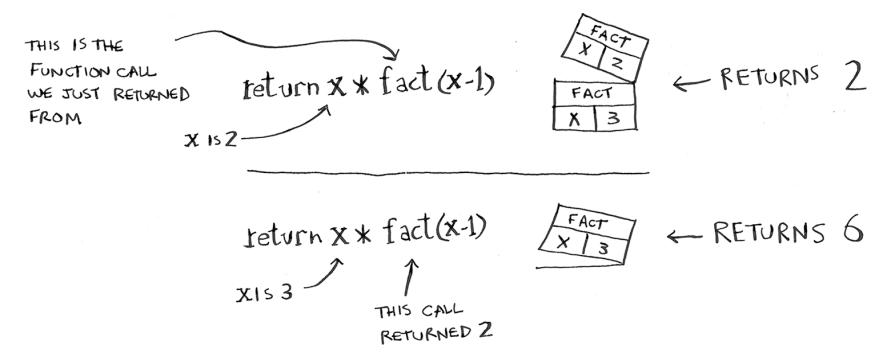 THIS IS THE
FUNCTION CALL
WE JUST RETURNED
FROM
return x * fact(x-1)
X IS 2
FACT
X 2
FACT
X 3
← RETURNS 2
return x * fact(x-1)
X IS 3
THIS CALL
RETURNED 2
FACT
X 3
← RETURNS 6